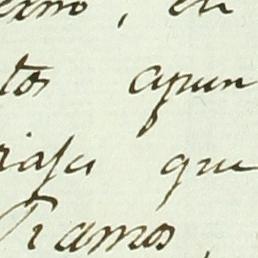 erno, en
tos apun
riafu que
Ramos,